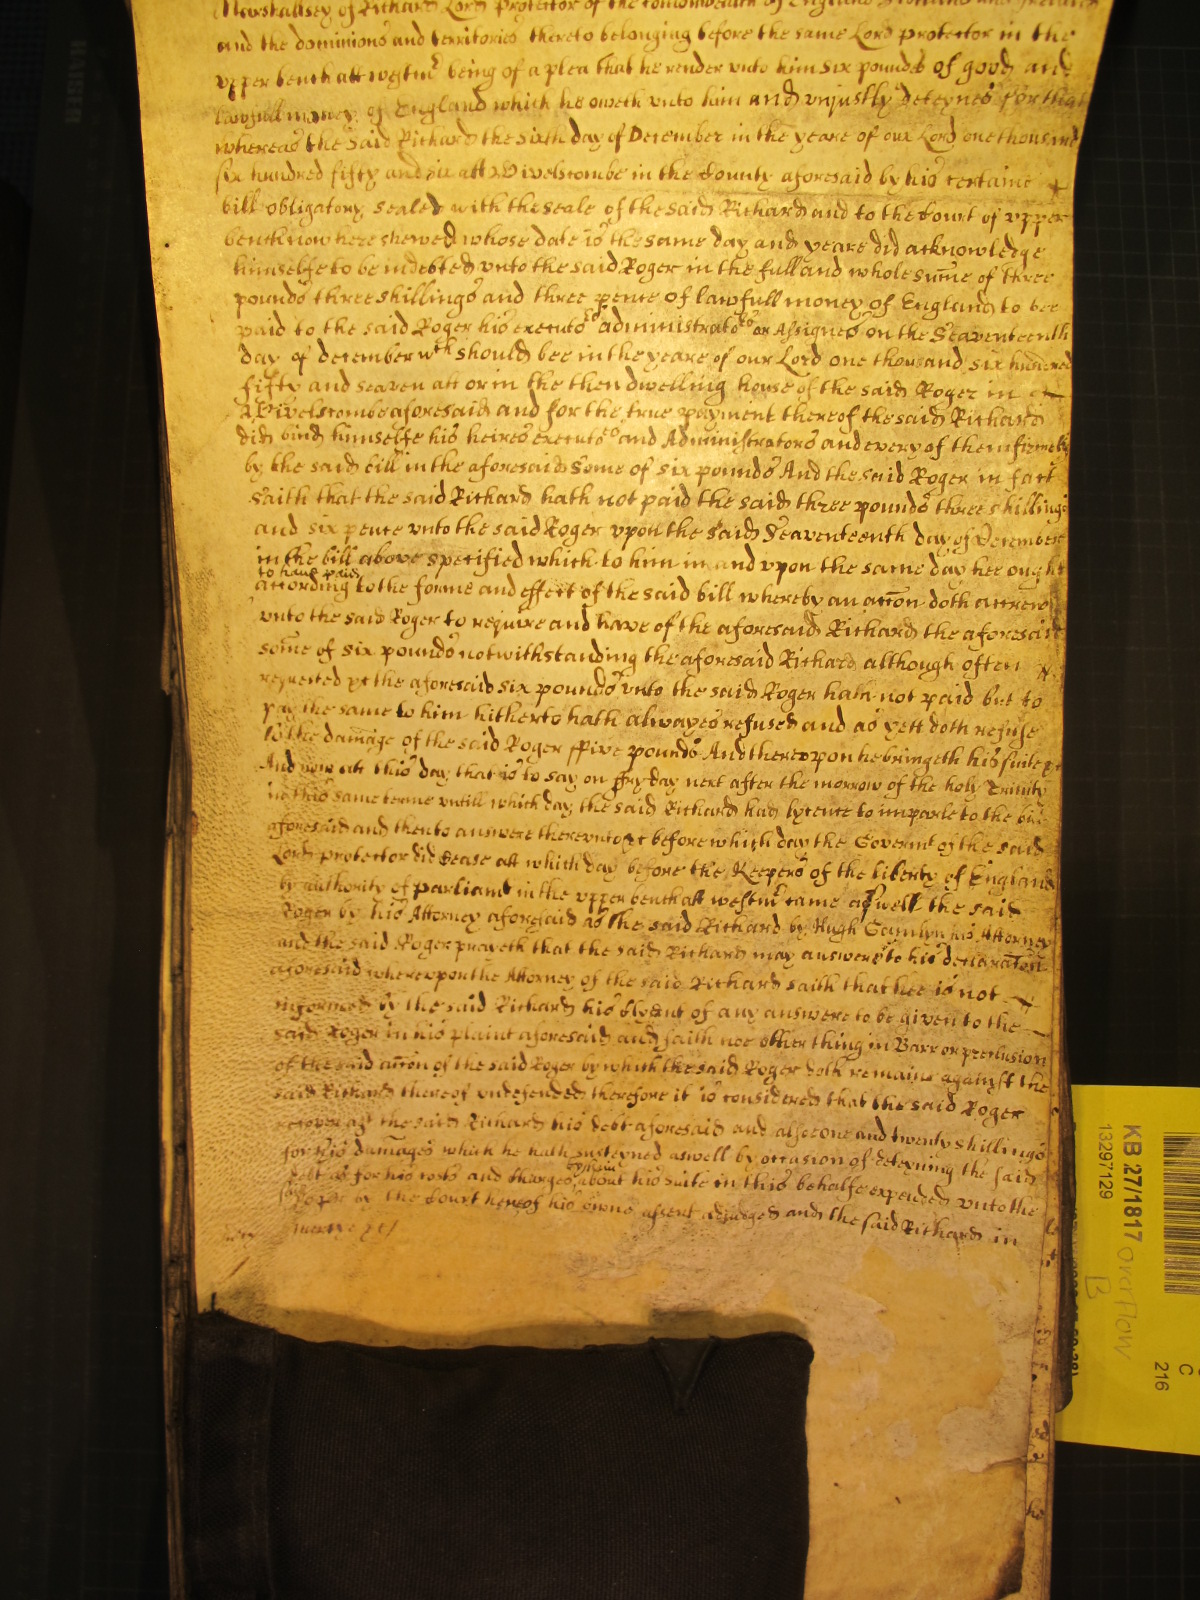 Marshallsey of Richard Lord Protector of the Comonwealth of England Scotland and Ireland
and the dominions and territories thereto belonging before the same Lord protector in the
vpper bench att westmr being of a plea that he render vnto him six pounds of good and
lawfull money of England which he oweth vnto him and vnjustly deteynes for that
whereas the said Richard the sixth day of December in the yeare of our Lord one thousand
six hundred fifty and six att Wivelscombe in the County aforesaid by his certaine
bill obligatory sealed with the seale of the said Richard and to the Court of vpper
bench now here shewed whose date is the same day and yeare did acknowledge
himselfe to be indebted vnto the said Roger in the full and whole sume of three
pounds three shillings and three pence of lawfull money of England to bee
paid to the said Roger his executors administrators or Assignes on the Seaventeenth
day of december wch should bee in the yeare of our Lord one thousand six hundred
fifty and seaven att or in the then dwelling house of the said Roger in
Wivelscombe aforesaid and for the true payment thereof the said Richard
did bind himselfe his heires executors and Administrators and every of them firmely
by the said bill in the aforesaid some of six pounds And the said Roger in fact
saith that the said Richard hath not paid the said three pounds three shillings
and six pence vnto the said Roger vpon the said Seaventeenth day of December
in the bill above specified which to him in and vpon the same day hee ought
to have paid
according to the forme and effect of the said bill whereby an accon doth accrew
vnto the said Roger to require and have of the aforesaid Richard the aforesaid
some of six pounds notwithstanding the aforesaid Richard although often
requested yt the aforesaid six pounds vnto the said Roger hath not paid but to
pay the same to him hitherto hath alwayes refused and as yett doth refuse
to the damage of the said Roger ffive pounds And therevpon he bringeth his suite &c
And now att this day that is to say on ffryday next after the morrow of the holy Trinity
in this same terme vntill which day the said Richard had lycence to imparle to the bill
aforesaid and then to answere therevnto &c before which day the Governmt of the said
Lord protector did cease att which day before the Keepers of the liberty of England
by authority of parliamt in the vpper bench att westmr came aswell the said
Roger by his Attorney aforesaid as the said Richard by Hugh his Attorney
and the said Roger prayeth that the said Richard may answere to his declaracon
aforesaid wherevpon the Attorney of the said Richard saith that hee is not
informed by the said Richard his Clyent of any answere to be given to the
said Roger in his plaint aforesaid and saith noe other thing in Barr or preclusion
of the said accon of the said Roger by which the said Roger doth remaine against the
said Richard thereof vndefended therefore it is considered that the said Roger
recover agt the said Richard his debt aforesaid and alsoe one and twenty shillings
for his damages which he hath susteyned aswell by occasion of deteyning the said
debt as for his costs and charges by him about his suite in this behalfe expended vnto the
said Roger by the Court hereof his owne assent adjudged and the said Richard in
mercye &c
KB 27/1817
overflow
B
13297129
C
216
KAISER